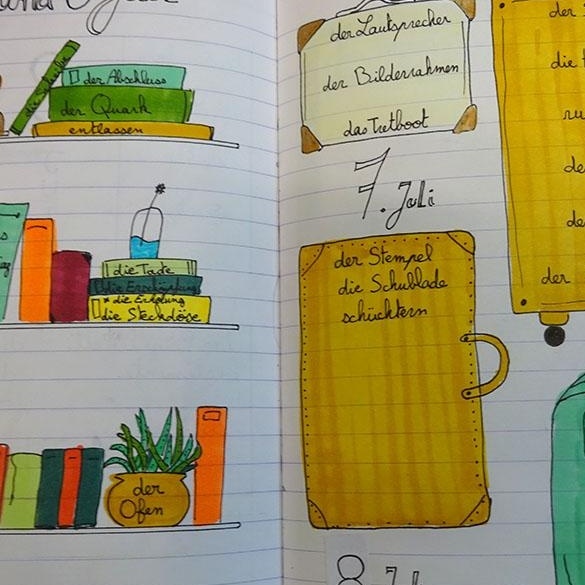 der Abschluss
der Quark
entlassen
die Taste
die Erschöpfung
* die Erholung
die Steckdose
der
Ofen
der Lautsprecher
der Bilderrahmen
das Tretboot
7. Juli
der Stempel
die Schublade
schüchtern
der
die
der
8